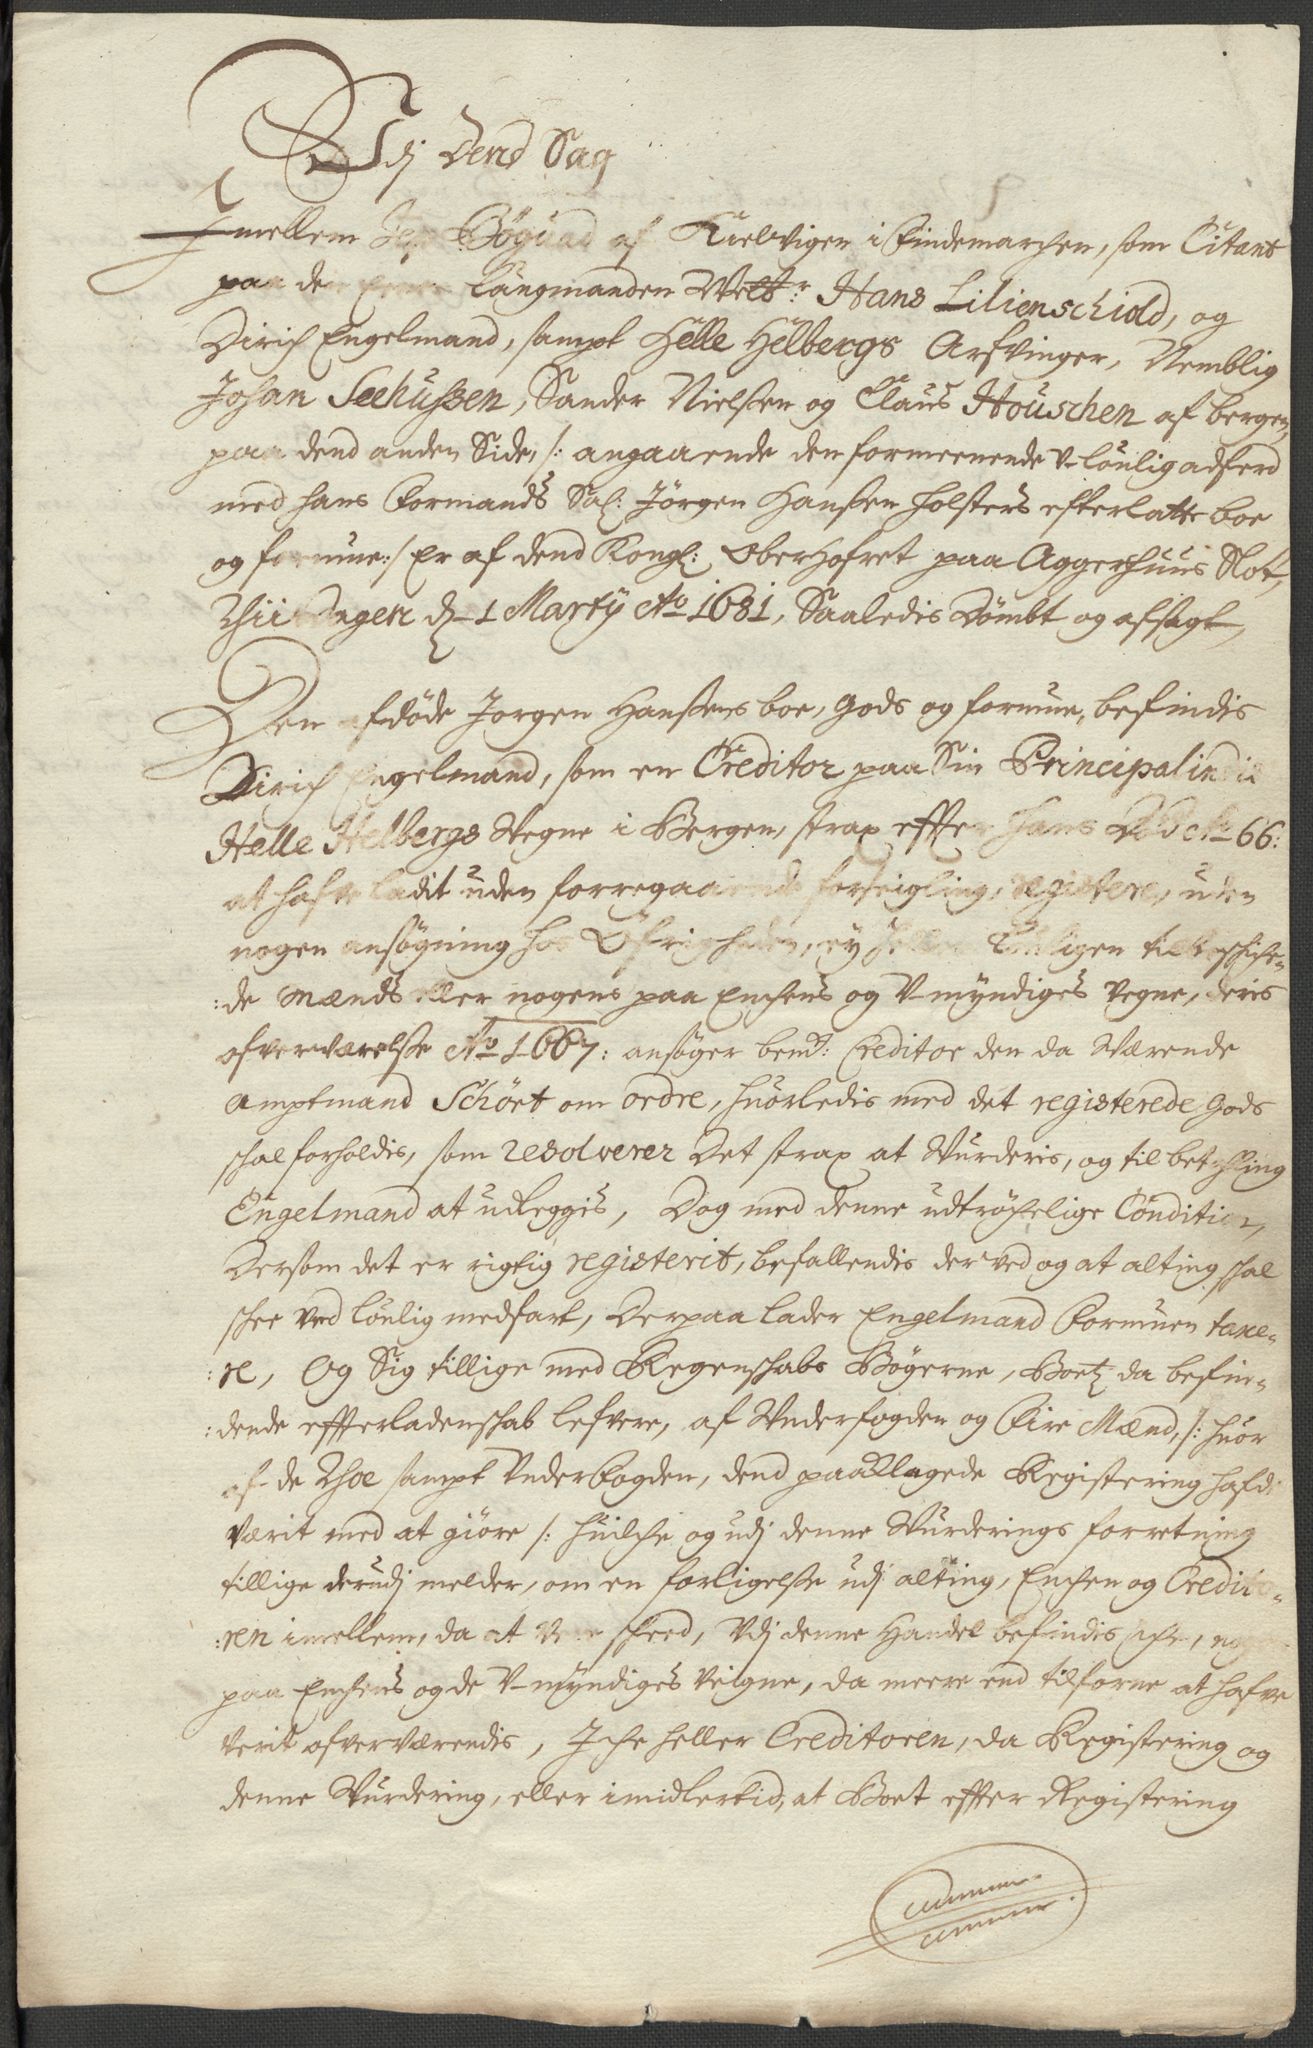 Udj Dend Sag
Imellem Bøgvad af Kielviigen i Findemarchen, som Citant
paa den Laugmanden Welb:r Hans Lilienschiold, og
Dirich Engelmand, sampt Helle Helbergs Arfvinger, Nemblig
Johan Seehussen, Sander Nielssen og Claus Houschen af bergen,
paa dend anden Side, /: angaaende den formeenende V-louligadferd
med hans Formands Sal: Jørgen Hanssen Holsters efterlatte boe
og formue:/ Er af dend Kongl: Oberhofret paa Aggershuus Slot,
d– 1 Martij Ao 1681, Saaledis Dømbt og afsagt,
Den afdøde Jørgen Hanssens boe, gods og formue, befindis
Dirich Engelmand, som en Creditor paa Sin Principalindis
Helle Helbergs Wegne i Bergen, strax effter hans Død Ao 66:
at hafve ladit uden forregaaende forseigling, registere, uden
nogen ansøgning hos Øfrigheden, ey heller loulligen tilbeschiche¬
:de Mænds eller nogens paa Enchens og V-myndiges vegne, deris
ofverværelsse Ao 1667: ansøger bemt: Creditor den da Wærende
amptmand Schört om ordre, huorledis med det registerede gods
schal forholdis, som resolverer Det strax at Wurderis, og til betahling
Engelmand at udleggis, Dog med denne udtrøchelige Condition,
Dersom det er rigtig registerit, befallendis der ved og at alting schal
schee ved loulig medfart, Derpaa lader Engelmand Formuen taxe¬
:re, Og Sig tillige med Regenschabs Bøgerne, Boetz da befin¬
:dende effterladenschab lefvere, af Underfogden og Fire Mænd, /: huor
af de Thoe sampt Underfogden, dend paaklagede Registering hafde
værit med at giøre /: huilche og udj denne Wurderings forretning
tillige derudj melder, om en forligelsse udj alting, Enchen og Credito¬
:ren imellem, da at være scheed, Udj denne Handel befindis iche,
paa Enchens og de V-myndiges veigne, da meere end tilforne at hafve
verit ofverværendis, Iche heller Creditoren, da Registering og
denne Wurdering, eller imidlertid, at Boet effter Registering